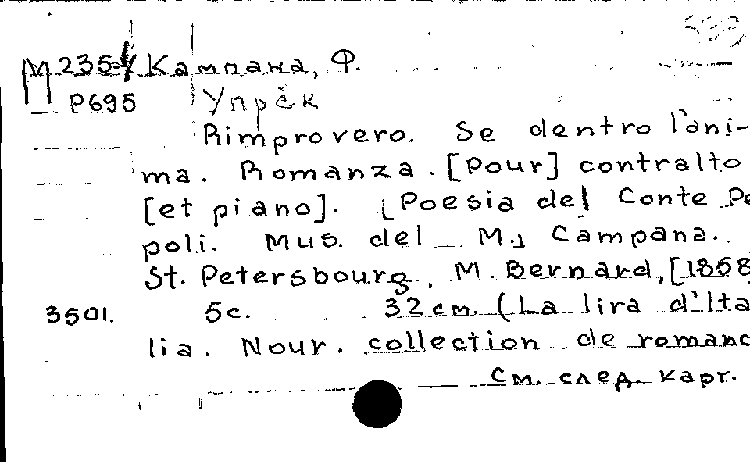 М235-1 Кампана, Ф.
Р695 Упрёк
Rimprovero. Se dentro l'ani-
ma. Romanza. [Pour] contralto
[et piano]. [Poesia del Conte Pe
poli. Mus. del M.] Campana.
St. Petersbourg, M. Bernard, [1868
3501. 5c. 32 cm. (La lira d'Ita
lia. Nour. collection de romanc
См. след. карт.